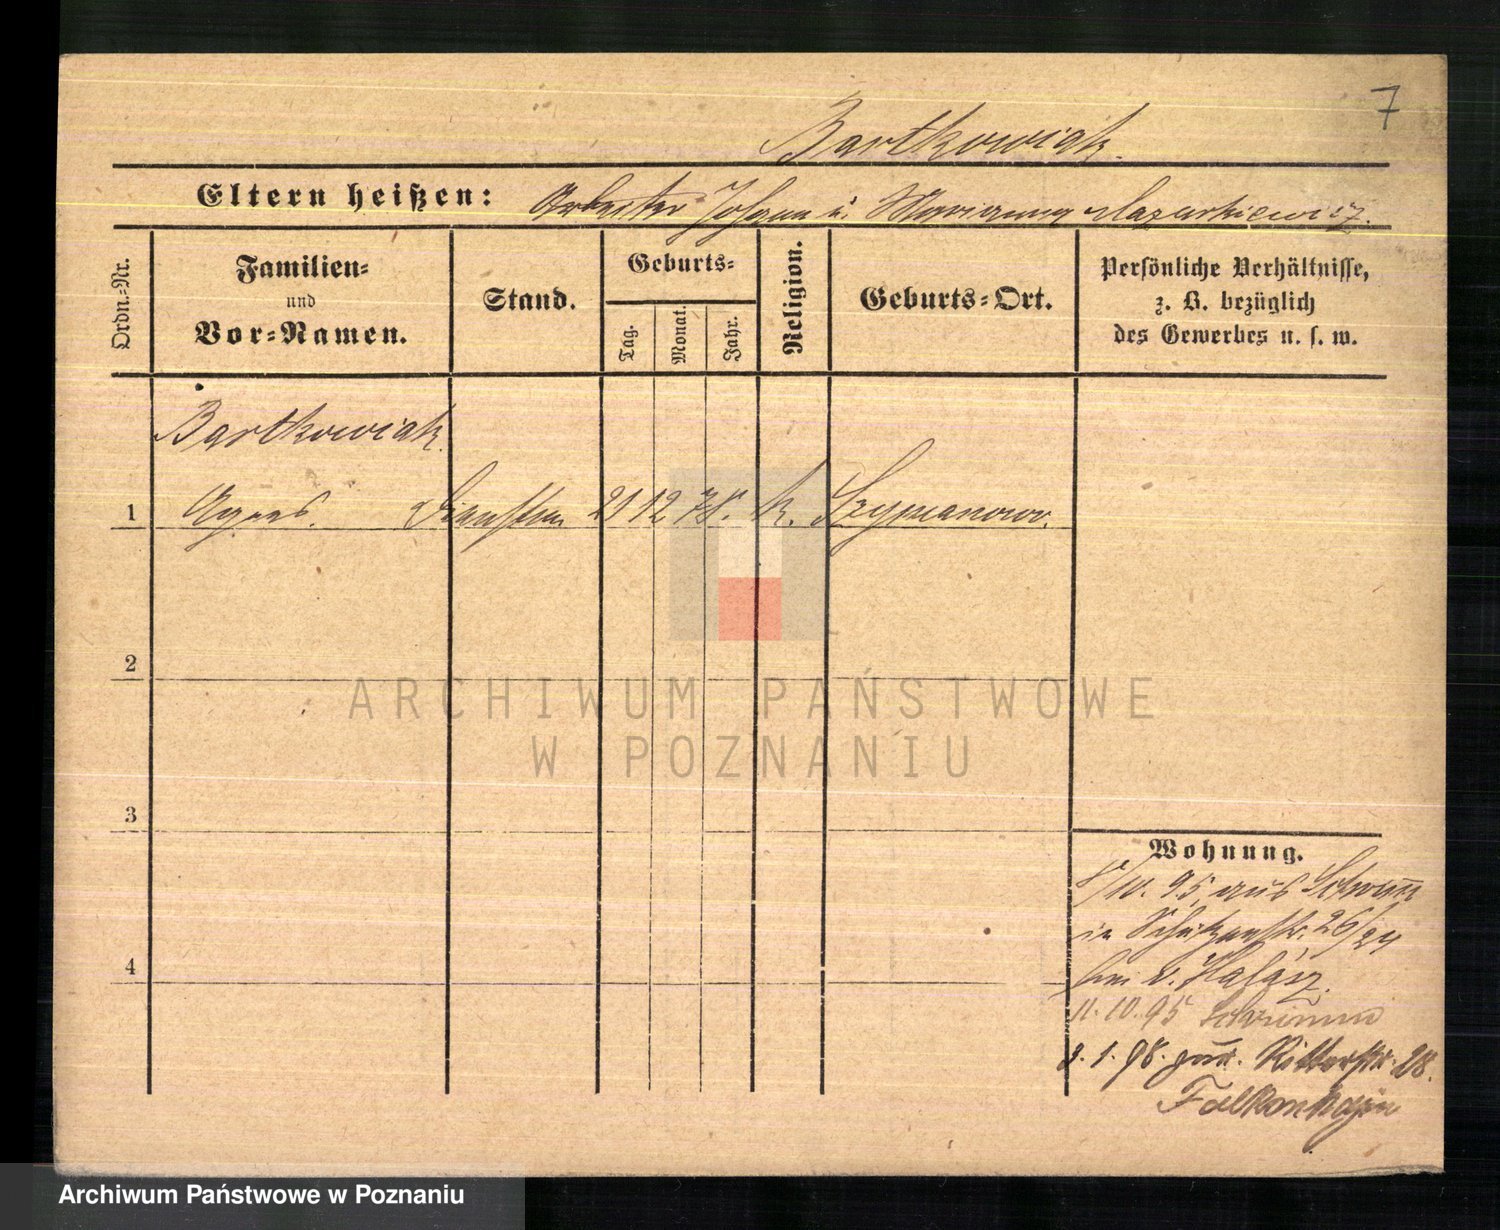 7
Bartkowiak.
Eltern heißen: Arbeiter Johann u. Marianna Mazurkiewicz.
Ordn.-Nr.
Familien-
und
Vor-Namen.
Stand.
Geburts-
Tag.
Monat.
Jahr.
Religion.
Geburts-Ort.
Persönliche Verhältnisse,
z. B. bezüglich
des Gewerbes u. s. w.
Bartkowiak
1 Agnes. 21 12 78. k. Szymanowo.
2
ARCHIWUM PAŃSTWOWE
W POZNANIU
3
Wohnung.
8/10. 95, aus Schrimm
in Schützenstr. 26/24
bei v.
4
11. 10. 95 Schrimm
1. 98. zur. Ritterstr. 28.
Falkenhagen
Archiwum Państwowe w Poznaniu